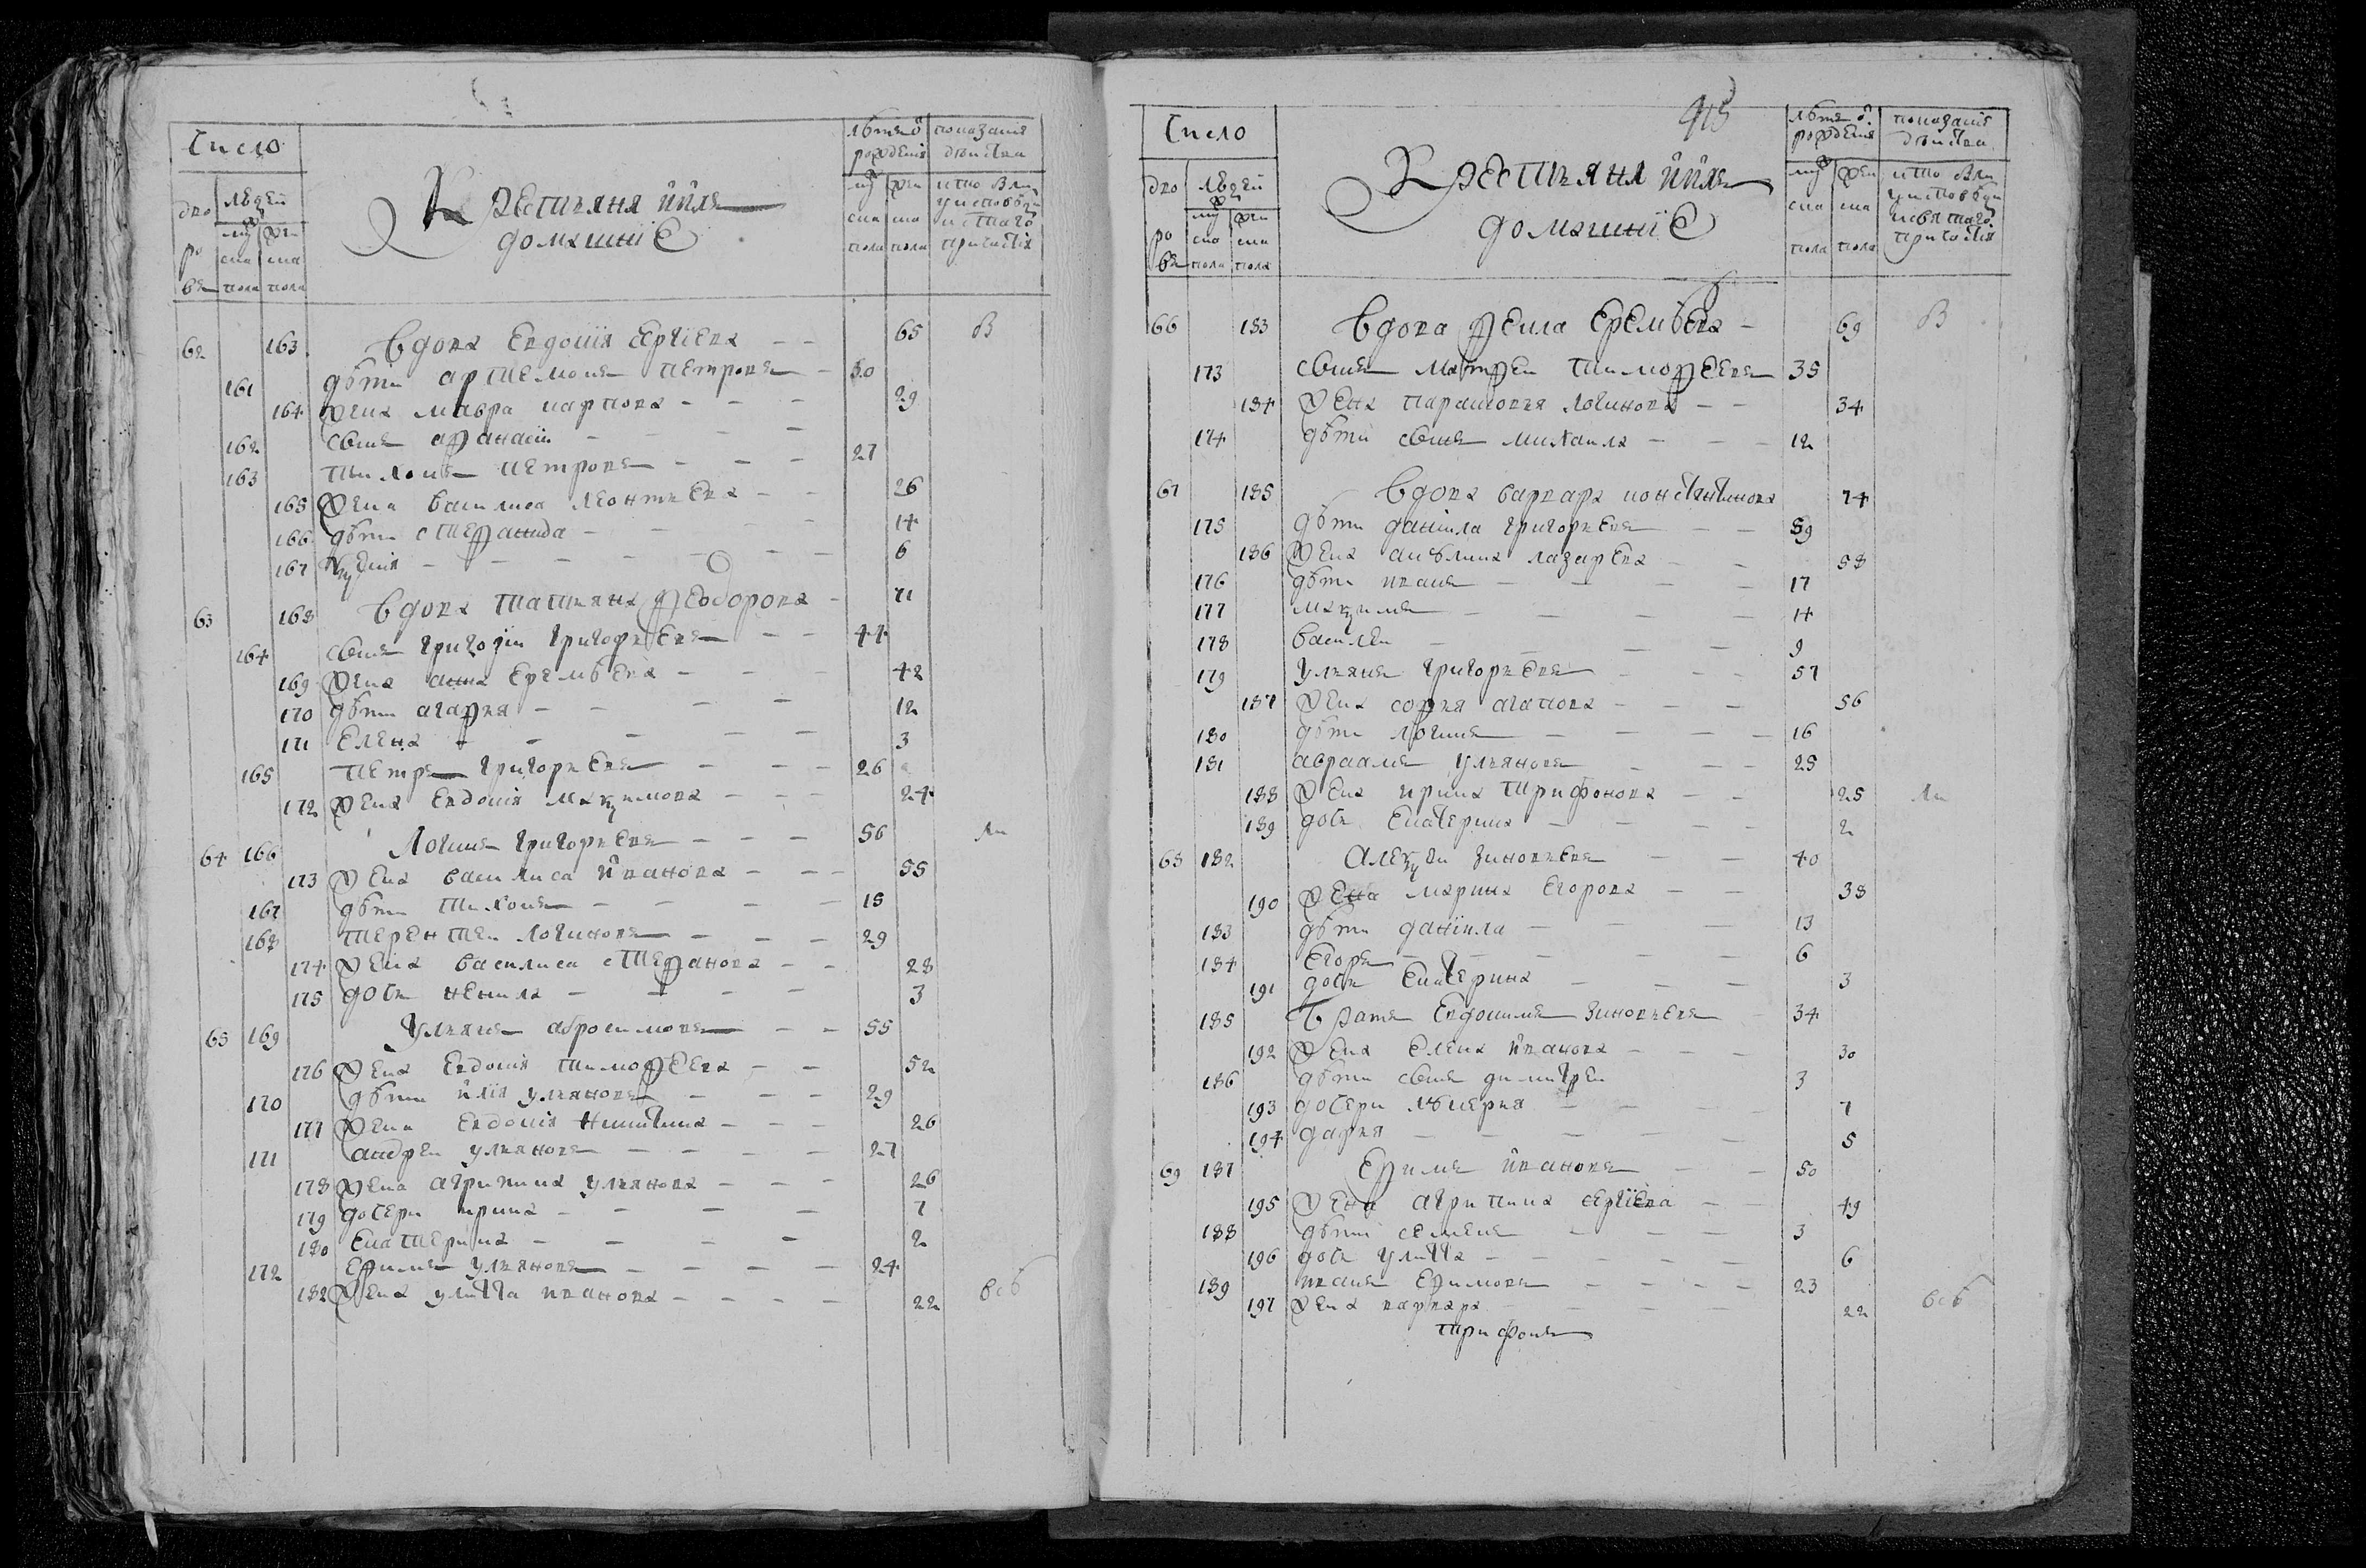 Число
дво
ровъ
людей
муска пола
женска пола
Крестьяня и ихъ
домашнїе
лѣта ѿ
рожденїя
муска пола
женска пола
показанїя
действа
кто были
у исповѣди
и с͠таго
причастїя
62 163 вдова Евдокїя сергїева 65 В
161 дѣти артемонъ петровъ 30
164 жена мавра карпова 29
162 сынъ афанасїи
163 тихонъ петровъ 27
165 жена василиса леонтьева 26
166 дѣти степанида 14
167 6
63 168 вдова татьяна феодорова 71
164 сынъ григорїи григорьевъ 44
169 жена анна Еремѣева 42
170 дѣти агафья 12
171 Елена 3
165 петръ григорьевъ 26
172 жена Евдокїя маѯимова 24
64 166 Логинъ григорьевъ 56 ли
173 жена василиса иванова 55
167 дѣти тихонъ 15
168 терентеи логиновъ 29
174 жена василиса стефанова 28
175 дочь ненила 3
65 169 Ульянъ абросимовъ 55
176 жена Евдокїя тимофеева 52
170 дѣти илїя ульяновъ 29
177 жена Евдокїя никитина 26
171 андреи ульяновъ 27
178 жена агрипина ульянова 26
179 дочери ирина 7
180 Екатерина 2
172 Ефимъ ульяновъ 24
182 жена улитта иванова 22 всѣ
415
Число
дво
ровъ
людей
муска пола
женска пола
Крестьяня и ихъ
домашнїе
лѣта ѿ
рожденїя
муска пола
женска пола
показанїя
действа
кто были
у исповѣди
и святаго
причастїя
66 183 вдова фекла Еремѣева 69 В
173 сынъ матфеи тимофеевъ 35
184 жена парасковья логинова 34
174 дѣти сынъ михаила 12
67 185 вдова варвара констянтинова 74
175 дѣти данїила григорьевъ 59
186 жена акѣлина лазарева 58
176 дѣти иванъ 17
177 маѯимъ 14
178 василеи 9
179 ульянъ григорьевъ 57
187 жена софья агапова 56
180 дѣти логинъ 16
181 авраамъ ульяновъ 25
188 жена ирина трифонова 25 ли
189 дочь Екатерина 2
68 182 Алеѯѣи зиновьевъ 40
190 жена марина Егорова 38
183 дѣти данїила 13
184 Егоръ 6
191 дочь Екатерина 3
185 Братъ Евдокимъ зиновьевъ 34
192 жена Елена иванова 30
186 дѣти сынъ димитреи 3
193 дочери лѣкерья 7
194 дарья 5
69 187 Ефимъ ивановъ 50
195 жена агрипина сергїева 49
188 дѣти семенъ 3
196 дочь улитта 6
189 иванъ Ефимовъ 23
197 жена варвара 22 всѣ
трифонъ